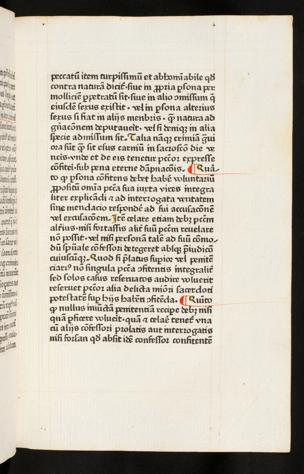 peccatū item turpissimū et abhomīabile qd
contra naturā dicit̄ siue in ꝓpria ꝑsona per
molliciem ꝑpetratū sit siue in alio omissum qͥ
eiusdē sexus existit · vel in ꝑsona alterius
sexus si fiat in alijs menbris · qͥ natura ad
vel si deniqꝫ in alia
specie admissum sit · Talia naqꝫ crimīa
ora fūt qͥ sit esus carniū in sacrosco die ve
neris · vnde et de eis tenetur pctor expresse
cōfiteri sub pena eterne dāpnacōis · ¶ Qua
to qͥ ꝑsona cōfitens debet habē voluntariū
ꝓpositū omīa pctā sua iuxta vices integra
liter explicādi ⁊ ad interrogata veritatem
sine mendacio respondē ad sui accusacōnē
vel excusacōem · Itē celare etiam debꝫ pctm
alterius nisi fortassis alit̄ suū pctm reuelare
nō possit · vel nisi personā talē ad suū cōmo
dū spūale cōfessori detegeret absqꝫ ꝑiudicō
cuiusqͣꝫ · Quod si p̄latus supior vel peniten
ciariꝰ nō singula pctā ꝯfitentis integralit̄
sed solos casus reseruatos audire voluerit
reseruet pctōr alia delicta miōri sacerdoti
potestatē sup hijs habēti ꝯfitēda · ¶ Quīto
qͥ nullus iniūctā penitentiā recipe debꝫ nisi
quā ꝑficere voluerit · quā ⁊ celare tenet̄ vna
cū alijs cōfessori prolatis aut interrogatis
nisi forsan qd absit idē confessor confitentē